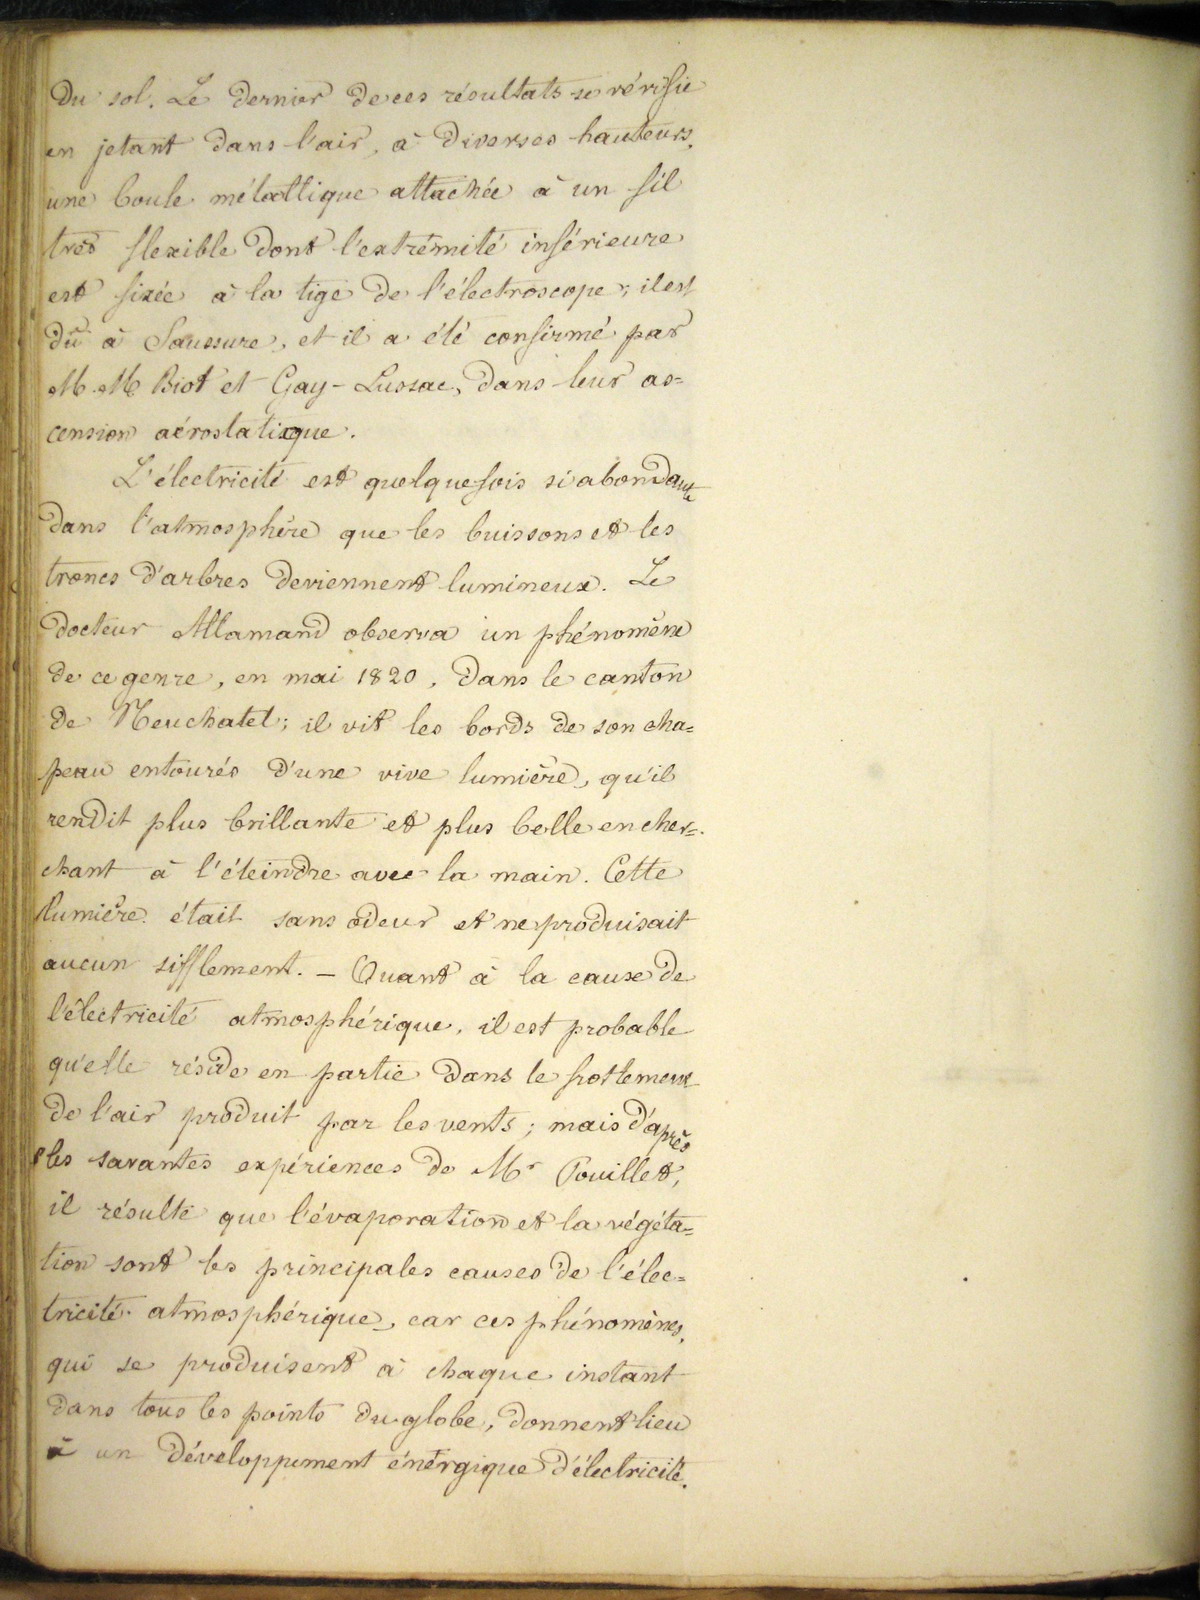 du sol. Le dernier de ces résultats se vérifie
en jetant dans l'air, à diverses hauteurs,
une boule métallique attachée à un fil
très flexible dont l'extrémité inférieure
est fixée à la tige de l'électroscope; il est
dû à Saussure, et il a été confirmé par
M. M. Biot et Gay-Lussac, dans leur as=
cension aérostatique.
L'électricité est quelquefois si abondante
dans l'atmosphère que les buissons et les
troncs d'arbres deviennent lumineux. Le
docteur Allamand observa un phénomène
de ce genre, en mai 1820, dans le canton
de Neuchatel; il vit les bords de son cha=
peau entourés d'une vive lumière, qu'il
rendit plus brillante et plus belle en cher=
chant à l'éteindre avec la main. Cette
lumière était sans odeur et ne produisait
aucun sifflement. — Quant à la cause de
l'électricité atmosphérique, il est probable
qu'elle réside en partie dans le frottement
de l'air produit par les vents; mais d'après
les savantes expériences de Mr Pouillet,
il résulte que l'évaporation et la végéta=
tion sont les principales causes de l'élec=
tricité atmosphérique, car ces phénomènes,
qui se produisent à chaque instant
dans tous les points du globe, donnent lieu
à un développement énergique d'électricité.